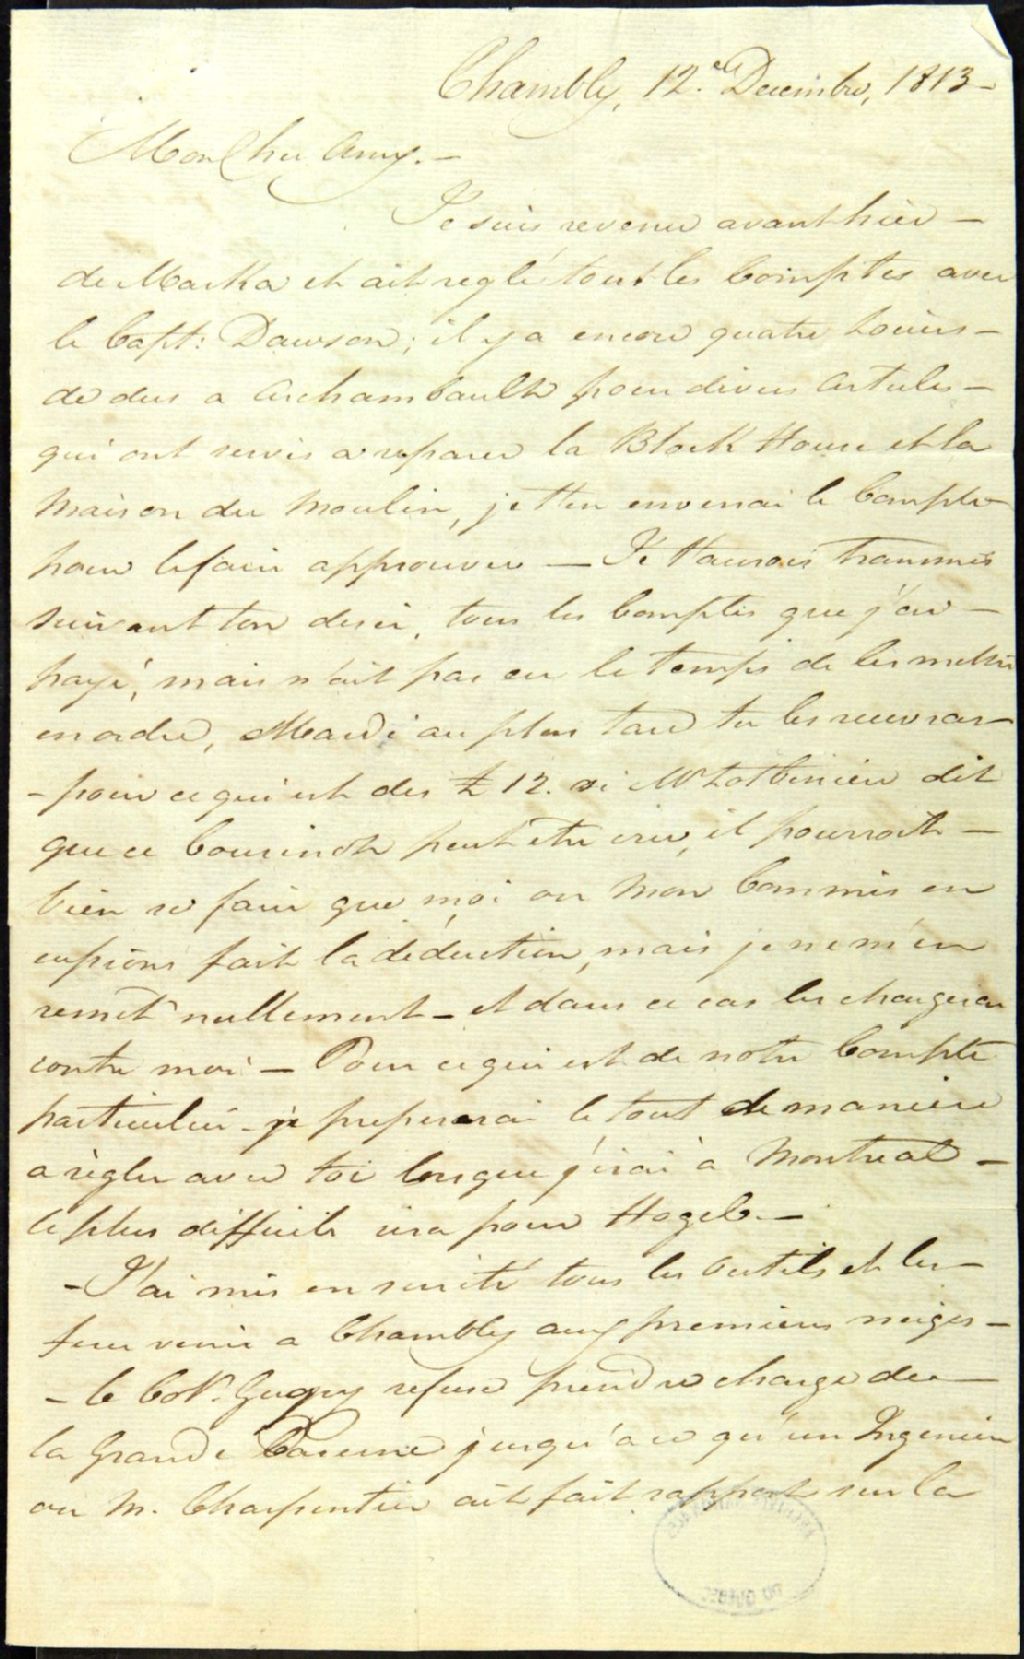 Chambly, 12.e Decembre, 1813 –
Mon Cher Amy. –
Je suis revenu avant hier –
de Maska et ait reglé tout les Comptes avec
le Capt: Dawson; il y a encore quatre Louis –
de dus a Archambault pour divers Articles –
qui ont servis a reparer la Block House et la
Maison du Moulin, je t'en enverrai le Compte
pour le faire approuver – Je t'aurois transmis
suivant ton desir, tous les Comptes que j'ai –
payé, mais n'ait pas eu le temps de les mettre
en ordre, Mardi au plus tard tu les recevras –
– pour ce qui est des £ 12. si Mr Lotbiniere dit
que ce Coursinot peut etre crû, il pourroit –
bien se faire que moi ou mon Commis en
eussions fait la deduction, mais je ne m'en
remêt nullement – et dans ce cas les chargera
contre moi – Pour ce qui est de notre Compte
particulier – je preparerai le tout de maniere
a règler avec toi lorsque j'irai à Montreal –
le plus difficile sera pour Hogel. –
– J'ai mis en sureté tous les Outils et les –
ferai venir a Chambly aux premieres neiges –
– le Col. Gugy refuse prendre charge de –
la Grande Caserne jusqu'a ce qu'un Ingenieur
ou M. Charpentier ait fait rapport sur la
DU QUÉBEC